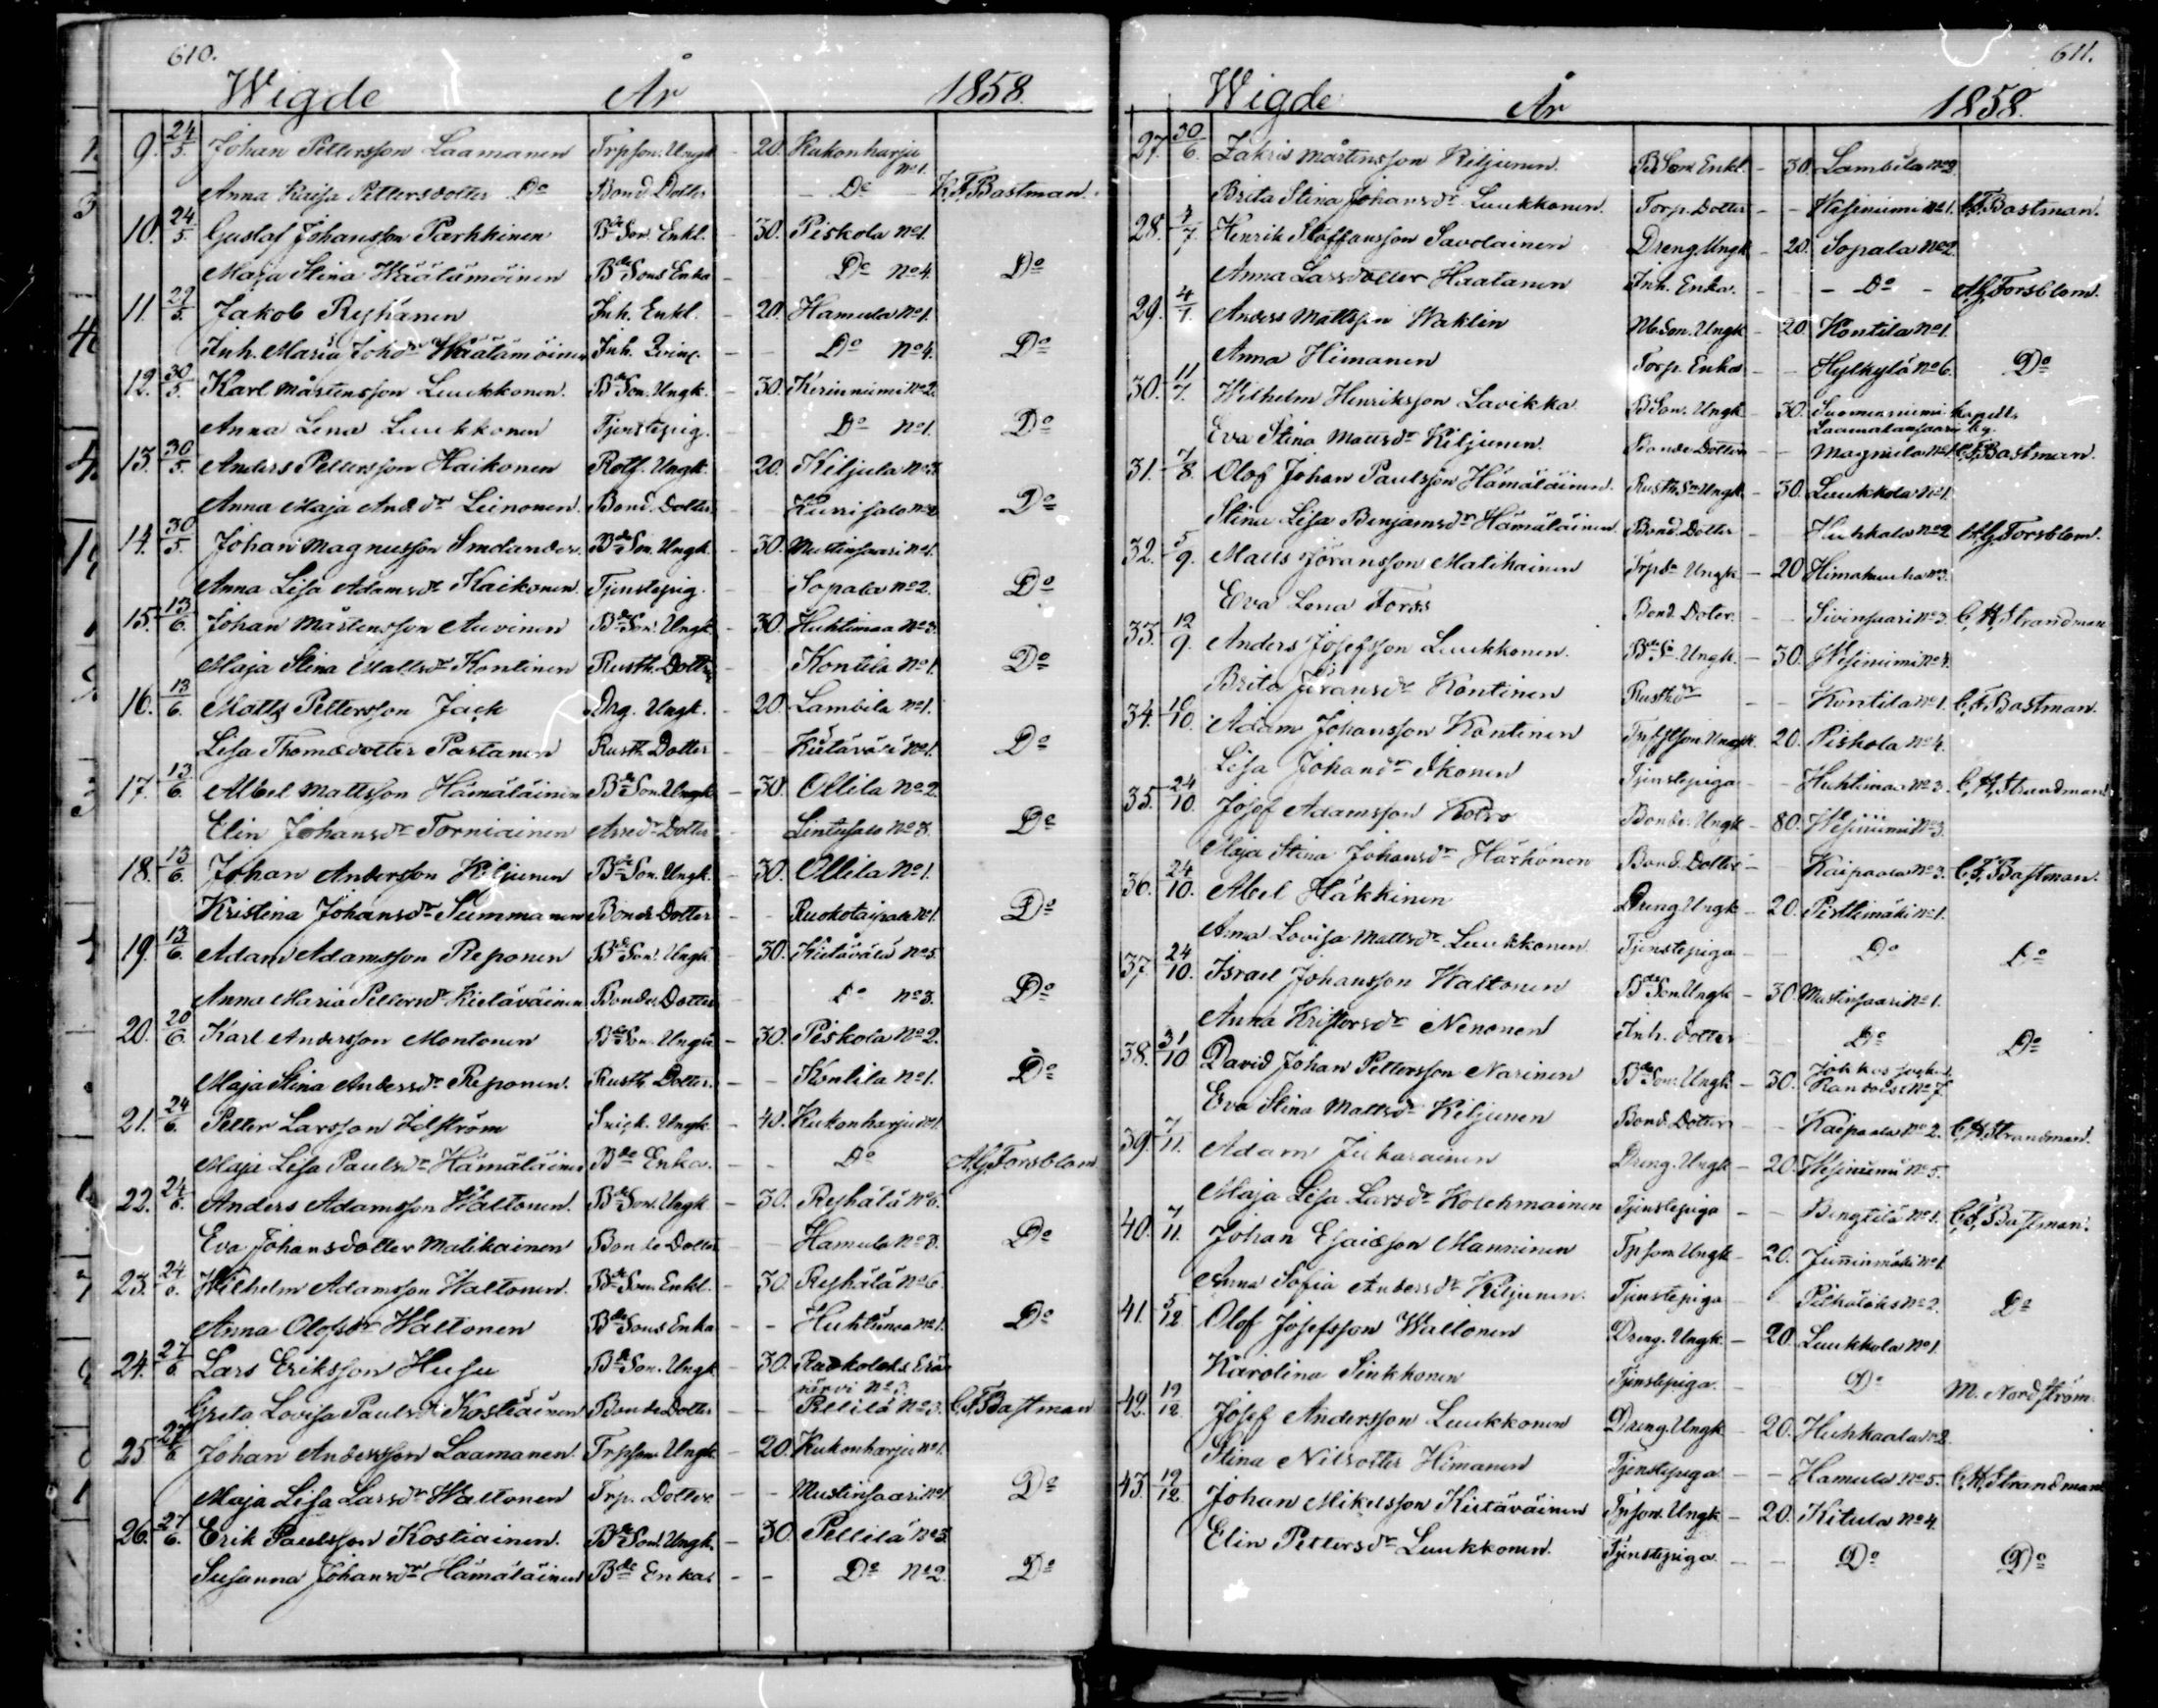 610.
Wigde År 1858.
9. 24/5. Johan Pettersson Laamanen Trpson. Ungk - 20. Kukonharju No1.
Anna Kaisa Pettersdotter Do Bond. Dotter - Do - K.F. Bastman.
10. 24/5. Gustaf Johansson Parkkinen Bde Son. Enkl. - 30. Piskola No1.
Maja Stina Wäätämöinen Bde Sons Enka - Do No4. Do
11. 29/5. Jakob Reyhänen Inh. Enkl. - 20. Hamula No1.
Inh. Maria Johdr Wäätämöinen Inh. - - Do No4. Do
12. 30/5. Karl Mårtensson Luukkonen. Bde Son. Ungk. - 30. Kirinniemi No2.
Anna Lena Luukkonen Tjenstepig. - Do No1. Do
13. 30/5. Anders Pettersson Haikonen Rotf. Ungk. - 20. Kiljula No3.
Anna Maja And.dr Leinonen. Bond. Dotter Kurisalo No2 Do
14. 30/5. Johan Magnusson Smolander. Bde Son. Ungk. - 30. Mustinsaari No1.
Anna Lisa Adamsdr Kaikonen Tjenstepig. Sopala No2. Do
15. 13/6. Johan Mårtensson Auvinen Bde Son. Ungk. - 30. Huhtimaa No3.
Maja Stina Mattsdr Kontinen Rusth. Dotter Kontila No1. Do
16. 13/6. Matts Pettersson Jack Drg. Ungk. - 20. Lambila No1.
Lisa Thomædotter Partanen Rusth Dotter - Kutävälä No1. Do
17. 13/6. Abel Mattsson Hämäläinen Bde Son. Ungk - 30. Ollila No2
Elin Johansdr Torniainen Arred. Dotter - Lintusalo No3. Do
18. 13/6. Johan Andersson Kiljunen Bde Son. Ungk. - 30. Ollila No1.
Kristina Johansdr Summanen Bonde Dotter - - Ruokotaipale No1. Do
19. 13/6. Adam Adamsson Reponen Bde Son. Ungk - 30. Kietävälä No5.
Anna Maria Pettersdr Kietäväinen Bonde. Dotter Do No3. Do
20. 20/6. Karl Andersson Montonen Bde Son. Ungk - 30. Piskola No2.
Maja Stina Andersdr Reponen. Rusth. Dotter. - - Kontila No1. Do
21. 24/6. Petter Larsson Idström Snick. Ungk. - 40. Kukonharju No1.
Maja Lisa Paulsdr Hämäläinen Bde Enka. - - Do A.G. Forsblom
22. 24/6. Anders Adamsson Waltonen. Bde Son. Ungk - 30. Reyhälä No6.
Eva Johansdotter Matikainen Bonde Dotter - Hamula No8. Do
23. 24/6. Wilhelm Adamsson Waltonen. Bde Son. Enkl. - 30. Reyhälä No6.
Anna Olofsdr Waltonen Bde Sons Enka - - Huhtimaa No1. Do
24. 27/6. Lars Eriksson Husu Bde Son. Ungk - 30. Ruokolaks Erä
järvi No
Greta Lovisa Paulsdr Kostiainen Bonde Dotter - - Pellilä No3. C.F. Bastman
25 27/6 Johan Andersson Laamanen. Trpson. Ungk - 20. Kukonharju No1.
Maja Lisa Larsdr Waltonen Trp. Dotter - - Mustinsaari No1 Do
26. 27/6. Erik Paulsson Kostiainen. Bde Son. Ungk. - 30. Pellilä No3.
Susanna Johansdr Hämäläinen Bde Enka - - Do No2. Do
611.
Wigde År 1858.
27. 30/6. Zakris Mårtensson Kiljunen. B Son. Enkl. - 30. Lambila No2
Brita Stina Johansdr Luukkonen. Torp. Dotter - - Wesiniemi No1. C.F. Bastman.
28. 4/7. Henrik Staffansson Savolainen Dreng. Ungk - 20. Sopala No2.
Anna Larsdotter Haatanen Inh. Enka. - - Do - A.G. Forsblom.
29. 4/7. Anders Mattsson Waklin Nb. Son. Ungk - 20. Kontila No1.
Anna Himanen Torp. Enka - - Hylkylä No6. Do
30. 11/7. Wilhelm Henriksson Lavikka B Son. Ungk - 30. Suomenniemi kapell.
Laamalansaari by.
Eva Stina Mattsdr Kiljunen. Bonde Dotter - - Magnula No1. C.F. Bastman.
31. 7/8. Olof Johan Paulsson Hämäläinen. Rusth. Sn Ungk. - 30. Luukkola No1.
Stina Lisa Benjamsdr Hämäläinen Bond. Dotter - Huhkala No2 A.G. Forsblom.
32. 5/9. Matts Jöransson Matikainen Trpsn Ungk - 20 Himahuuha No3.
Eva Lena Forss Bond. Doter. - - Sivinsaari No2. C.H. Strandman
33. 12/9. Anders Josefsson Luukkonen. Bde S. Ungk. - 30. Wesiniemi No4.
Brita Jöransdr Kontinen Rusthdr - - Kontila No1. C.F. Bastman.
34. 10. Adam Johansson Kontinen Ungk 20. Piskola No4.
Lisa Johandr Ikonen Tjenstepiga - Huhtimaa No3. C.H. Strandman
35. 24/10. Josef Adamsson Kolvo Bonde. Ungk - 80. Wesiniemi No3.
Maja Stina Johansdr Härkönen Bond. Dotter - Kaipaala No3. C.F. Bastman.
36. 24/10. Abel Häkkinen Dreng Ungk - 20. Pirttimäki No1.
Anna Lovisa Mattsdr Luukkonen Tjenstepiga - Do Do
37. 24/10. Israel Johansson Waltonen Bde Son Ungk - 30. Mustinsaari No1.
Anna Kristersdr Nenonen Inh. dotter - Do Do
38. 31/10 David Johan Pettersson Narinen Bde Son. Ungk - 30. Jokkas socken
No7.
Eva Stina Mattsdr Kiljunen Bond. Dotter - - Kaipaala No2. C.H. Strandman.
39. 7/11. Adam Jukarainen Dreng. Ungk - 20. Wesiniemi No5.
Maja Lisa Larsdr Koschmainen Tjenstepiga - - Bengtilä No1. C.F. Bastman.
40. 7/11. Johan Esaiasson Manninen Trpson. Ungk - 20. Junninmäki No1
Anna Sofia Andersdr Kiljunen. Tjenstepiga - - Pilkälaks No2. Do
41. 5/12 Olof Josefsson Waltonen Dreng. Ungk - 20. Luukkola No1.
Karolina Sinkkonen Tjenstepiga. - Do M. Nordström.
42. 12/12. Josef Andersson Luukkonen Dreng. Ungk - 20. Huhkaala No2.
Stina Nilsdotter Himanen Tjenstepiga - - Hamula No5. C.H. Strandman
43. 12/12. Johan Mikelsson Kietäväinen Trpson. Ungk - 20. Kitula No4.
Elin Pettersdr Luukkonen. Tjenstepiga. - - Do Do